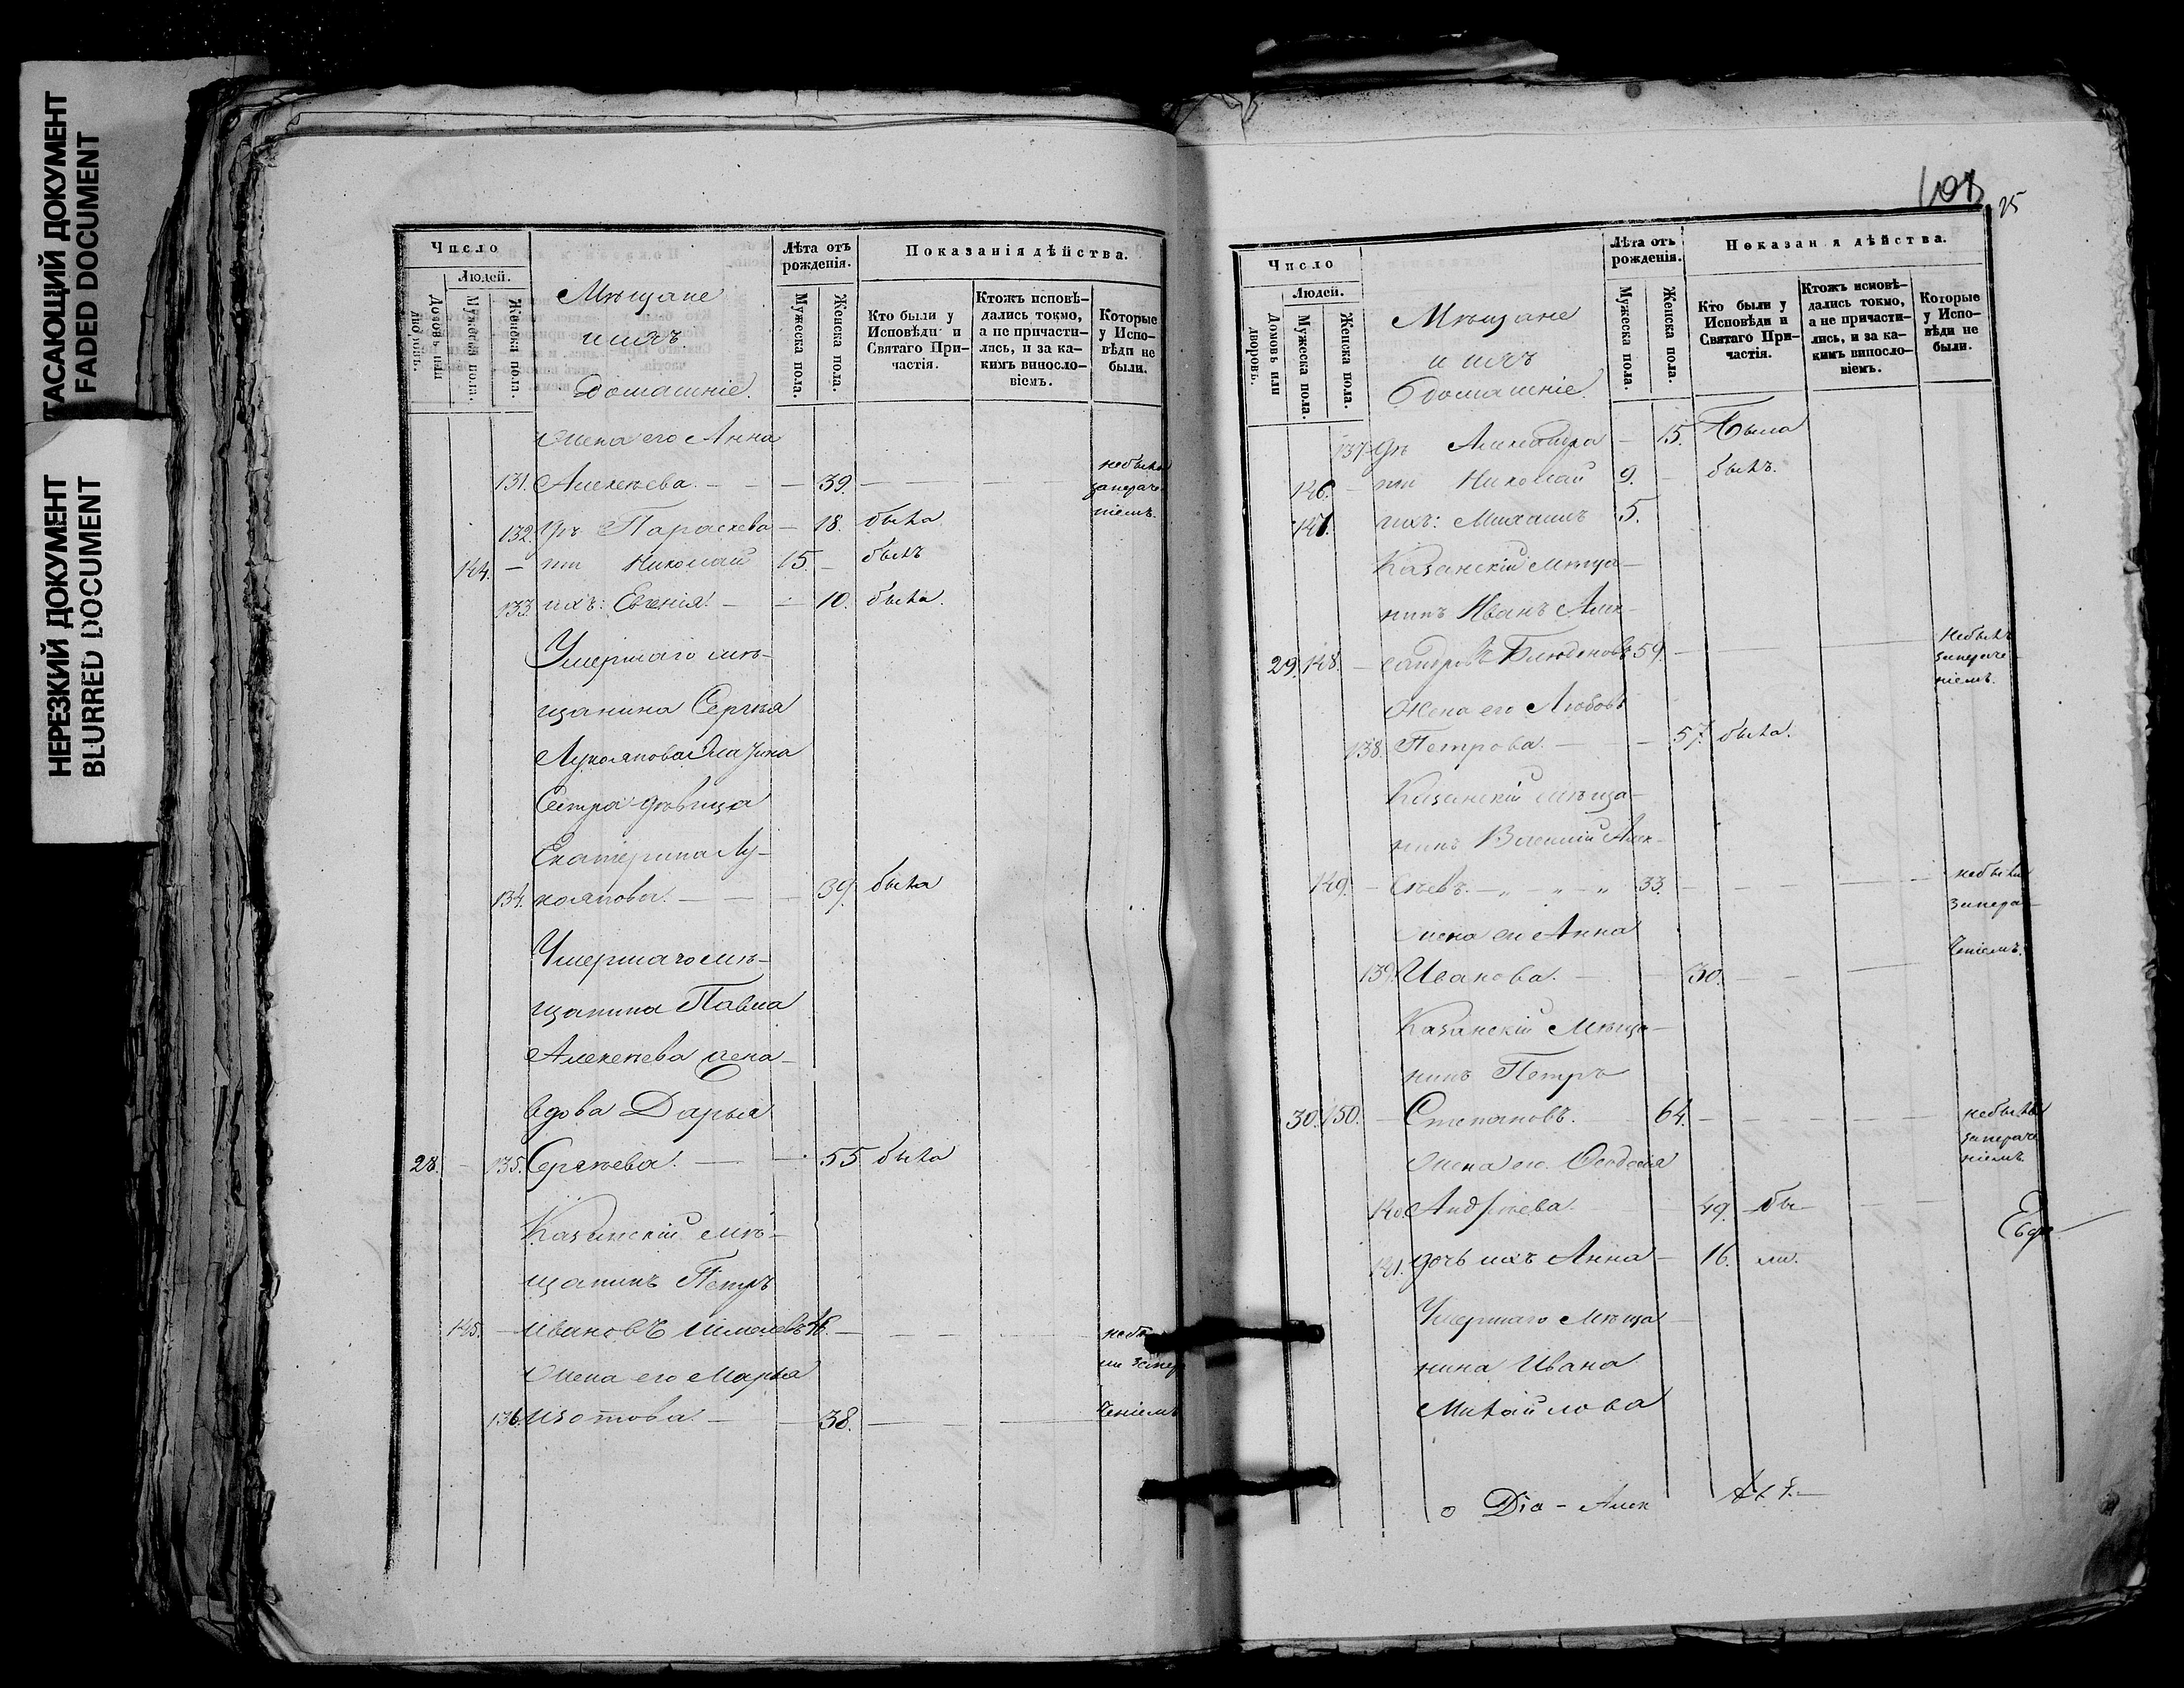 ГАСАЮЩИЙ ДОКУМЕНТ
FADED DOCUMENT
НЕРЕЗКИЙ ДОКУМЕНТ
BLURRED DOCUMENT
Число
Людей.
Домовъ или дворовъ.
Мужеска пола.
Женска пола.
Мѣщане
и ихъ
Домашніе.
Лѣта отъ рожденія.
Мужеска пола.
Женска пола.
Показанія дѣйства.
Кто были у Исповѣди и Святаго При-частія.
Ктожъ исповѣ-дались токмо, а не причасти-лись, и за ка-кимъ винословіемъ.
Которые у Испо-вѣди не были.
Жена его Анна
131. Алексѣева. — — — 39. — — — небыла
запераче
ніемъ.
132. дчь Параскева — 18. была
144. — ти Николай 15. — былъ
133. ихъ: Евгенія. — — 10. была.
Умершаго мѣ-
щанина Сергѣя
Лукоянова
Сестра дѣвица
Екатерина Лу-
134. коянова. — — — 39. была
Умершаго мѣ-
щанина Павла
Алексѣева жена
вдова Дарья
28. — 135. Сергѣева. — — 55 была
Казанскій мѣ-
щанинъ Петръ
145. — Ивановъ
Жена его Марья
136. Изотова. — — 38. —
ченіемъ
108
25
Число
Людей.
Домовъ или дворовъ.
Мужеска пола.
Женска пола.
Мѣщане
и ихъ
Домашніе.
Лѣта отъ рожденія.
Мужеска пола.
Женска пола.
Показанія дѣйства.
Кто были у Исповѣди и Святаго При-частія.
Ктожъ исповѣ-дались токмо, а не причасти-лись, и за ка-кимъ винословіемъ.
Которые у Испо-вѣди не были.
137. Александра — 15. Была
146. — ти Николай 9. — былъ.
ихъ: Михаилъ 5.
Казанскій мѣща-
нинъ Иванъ Алек-
29. 148. — сандровъ 59. — небылъ
запераче
ніемъ.
Жена его Любовь
138. Петрова. — — 57. была.
Казанскій мѣща-
нинъ Василій Алек-
149. — сѣевъ. — „ — „ — „ 33. — — — небыли
запера-
Жена его Анна
ченіемъ.
139. Иванова. — — 30. — — —
Казанскій Мѣща-
нинъ Петръ
30. 150. — Степановъ. 64. — — — небылъ
запераче
ніемъ.
Жена его Ѳеодосія
140. Андрѣева. 49. бы-
141. дочь ихъ Анна — 16. ли.
Умершаго Мѣща-
нина Ивана
Михайлова
Діа - Алек